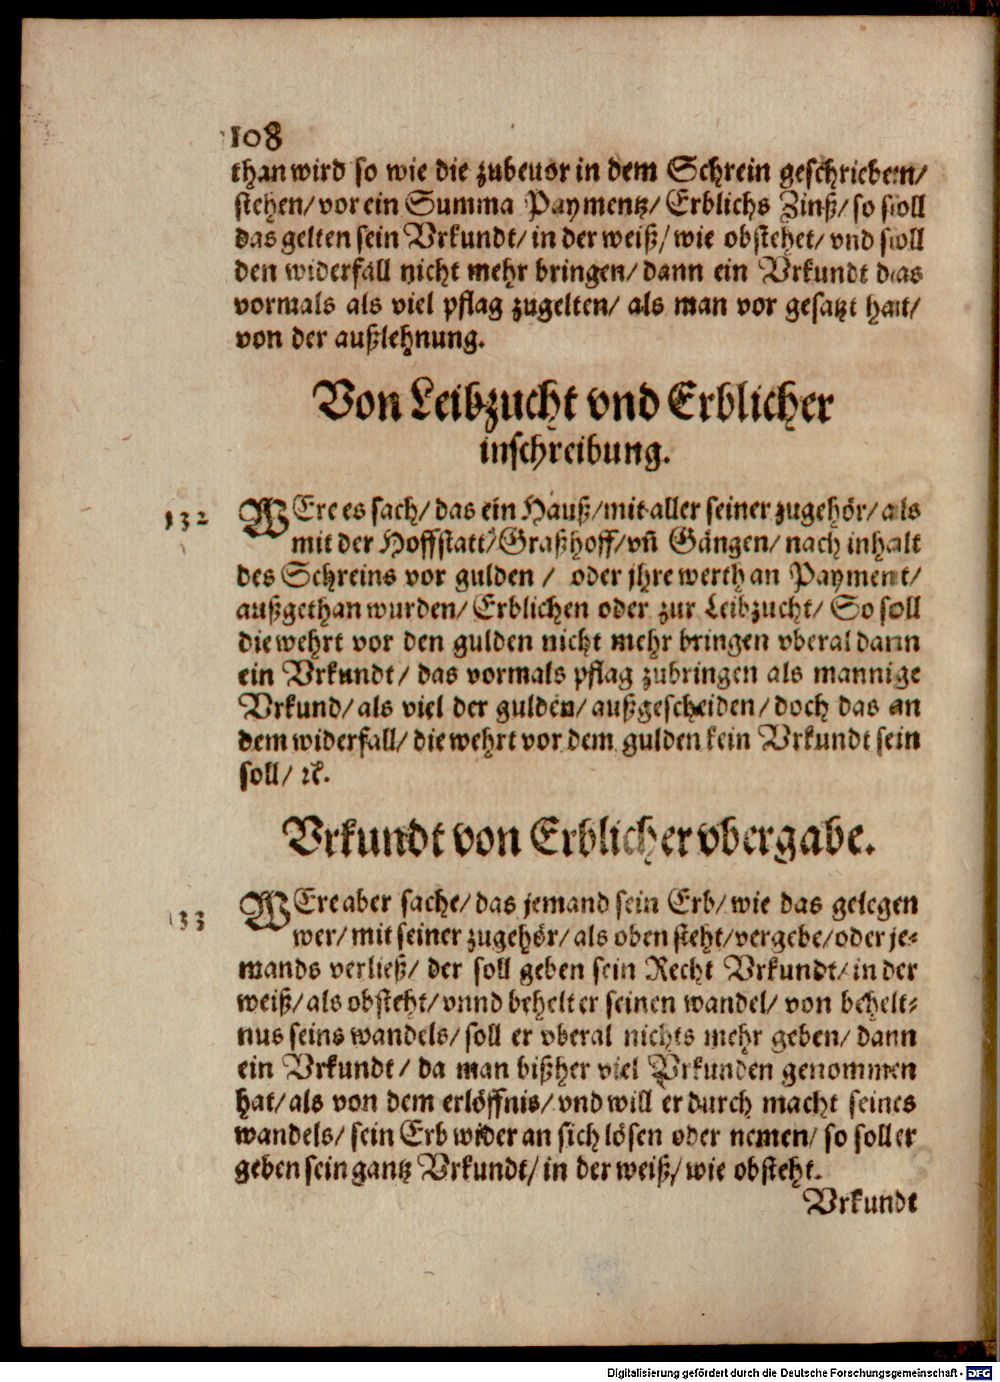 108
than wird so wie die zubeuor in dem Schrein geschrieben/
stehen/ vor ein Summa Paymentz/ Erblichs Zinß/ so soll
das gelten sein Vrkundt/ in der weiß/ wie obstehet/ vnd soll
den widerfall nicht mehr bringen/ dann ein Vrkundt das
vormals als viel pflag zugelten/ als man vor gesatzt hatt/
von der außlehnung.
Von Leibzucht vnd Erblicher
inschreibung.
132 WEre es sach/ das ein Hauß/ mit aller seiner zugehör/ als
mit der Hoffstatt/ Graßhoff/ vñ Gängen/ nach inhalt
des Schreins vor gulden / oder jhre werth an Payment/
außgethan wurden/ Erblichen oder zur Leibzucht/ So soll
die wehrt vor den gulden nicht mehr bringen vberal dann
ein Vrkundt/ das vormals pflag zubringen als mannige
Vrkund/ als viel der gulden/ außgescheiden/ doch das an
dem widerfall/ die wehrt vor dem gulden kein Vrkundt sein
soll/ ꝛc.
Vrkundt von Erblicher vbergabe.
133 WEre aber sache/ das jemand sein Erb/ wie das gelegen
wer/ mit seiner zugehör/ als oben steht/ vergebe/ oder je⸗
mands verließ/ der soll geben sein Recht Vrkundt/ in der
weiß/ als obsteht/ vnnd behelt er seinen wandel/ von behelt⸗
nus seins wandels/ soll er vberal nichts mehr geben/ dann
ein Vrkundt/ da man bißher viel Vrkunden genommen
hat/ als von dem erlöffnis/ vnd will er durch macht seines
wandels/ sein Erb wider an sich lösen oder nemen/ so soll er
geben sein gantz Vrkundt/ in der weiß/ wie obsteht.
Vrkundt
Digitalisierung gefördert durch die Deutsche Forschungsgemeinschaft - DFG